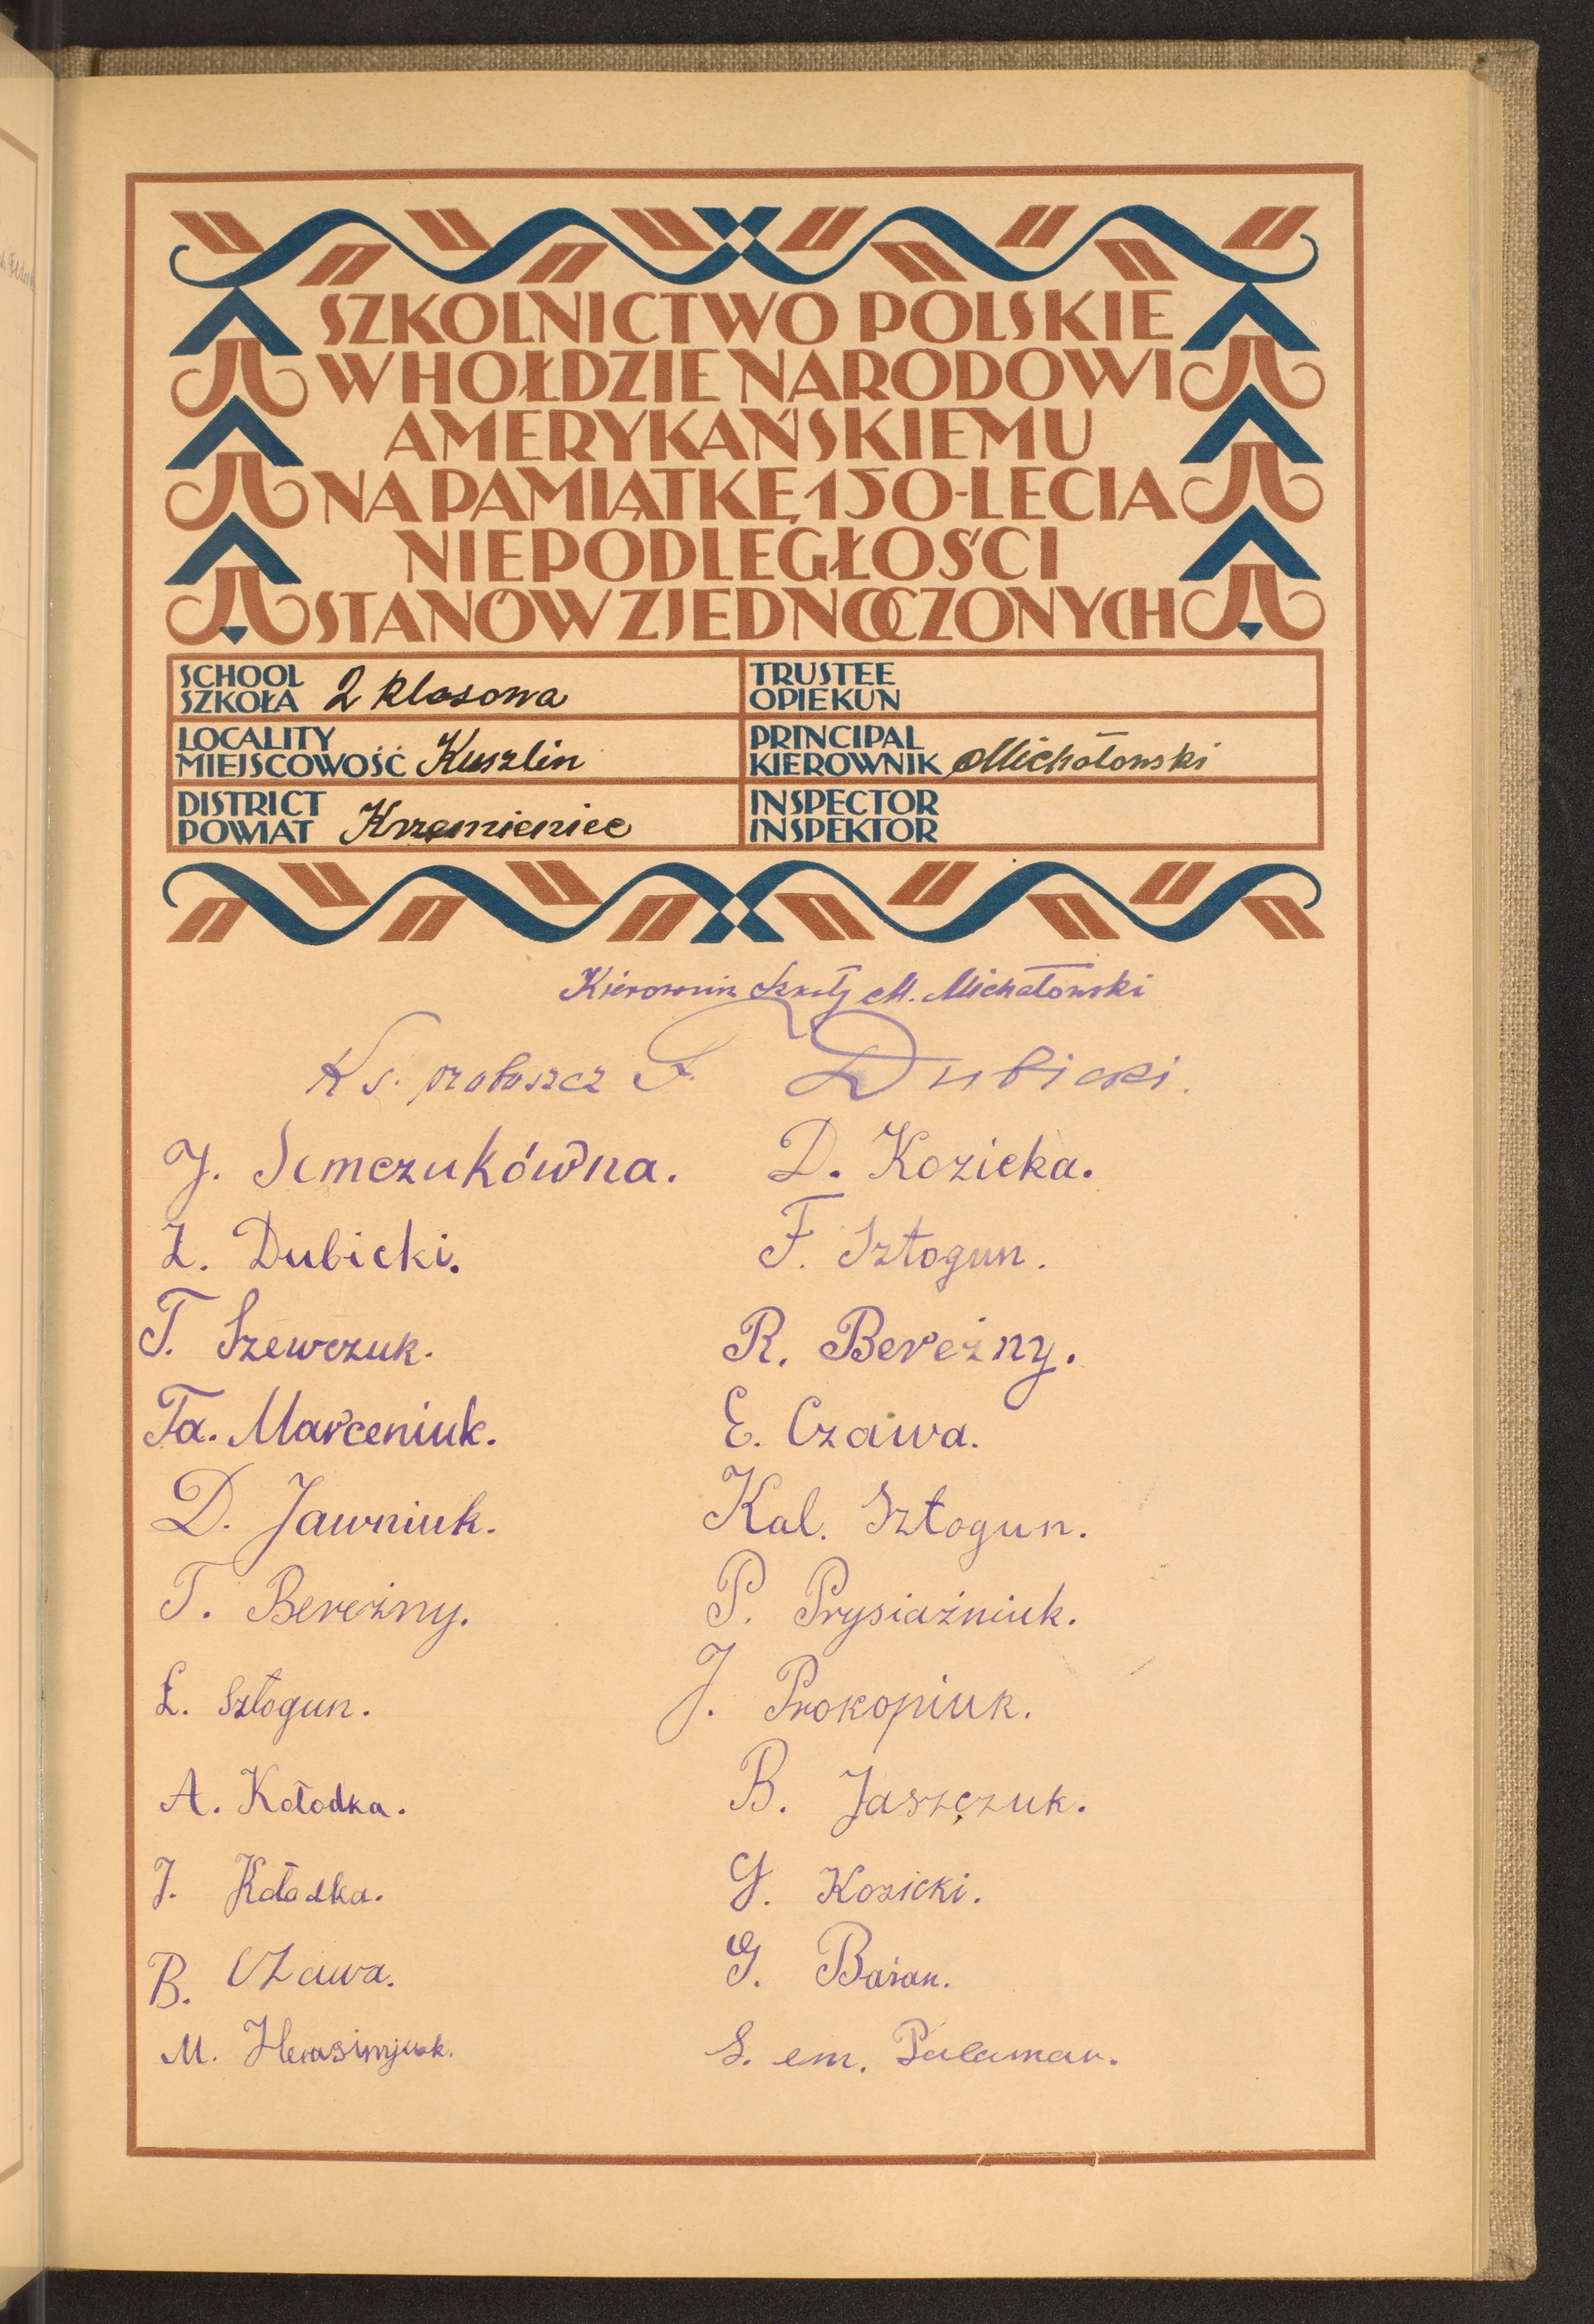 SZKOLNICTWO POLSKIE
W HOŁDZIE NARODOWI
AMERYKAŃSKIEMU
NA PAMIĄTKĘ 150-LECIA
NIEPODLEGŁOŚCI
STANÓW ZJEDNOCZONYCH
SCHOOL
SZKOŁA 2 klasowa
TRUSTEE
OPIEKUN
LOCALITY
MIEJSCOWOŚĆ Kuszlin
PRINCIPAL
KIEROWNIK Michałowski
DISTRICT
POWIAT Krzemieniec
INSPECTOR
INSPEKTOR
Kierownik Szkoły M. Michałowski
Ks. proboszcz F. Dubicki.
J. Semczukówna.
D. Kozicka.
Z. Dubicki.
F. Sztogun.
T. Szewczuk.
R. Bereżny.
Ta. Marceniuk.
E. Czawa.
D. Jawniuk.
Kal. Sztogun.
T. Bereżny.
P. Prysiażniuk.
Ł. Sztogun.
J. Prokopiuk.
A. Kołodka.
B. Jaszczuk.
J. Kołodka.
G. Kozicki.
B. Czawa.
G. Baran.
M. Herasimjuk.
S. em. Palamar.